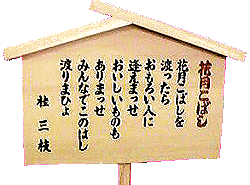 花月こばし
花月こばしを
渡ったら
おもろい人に
逢えまっせ
おいしいものも
ありまっせ
みんなでこのはし
渡りまひょ
桂三枝